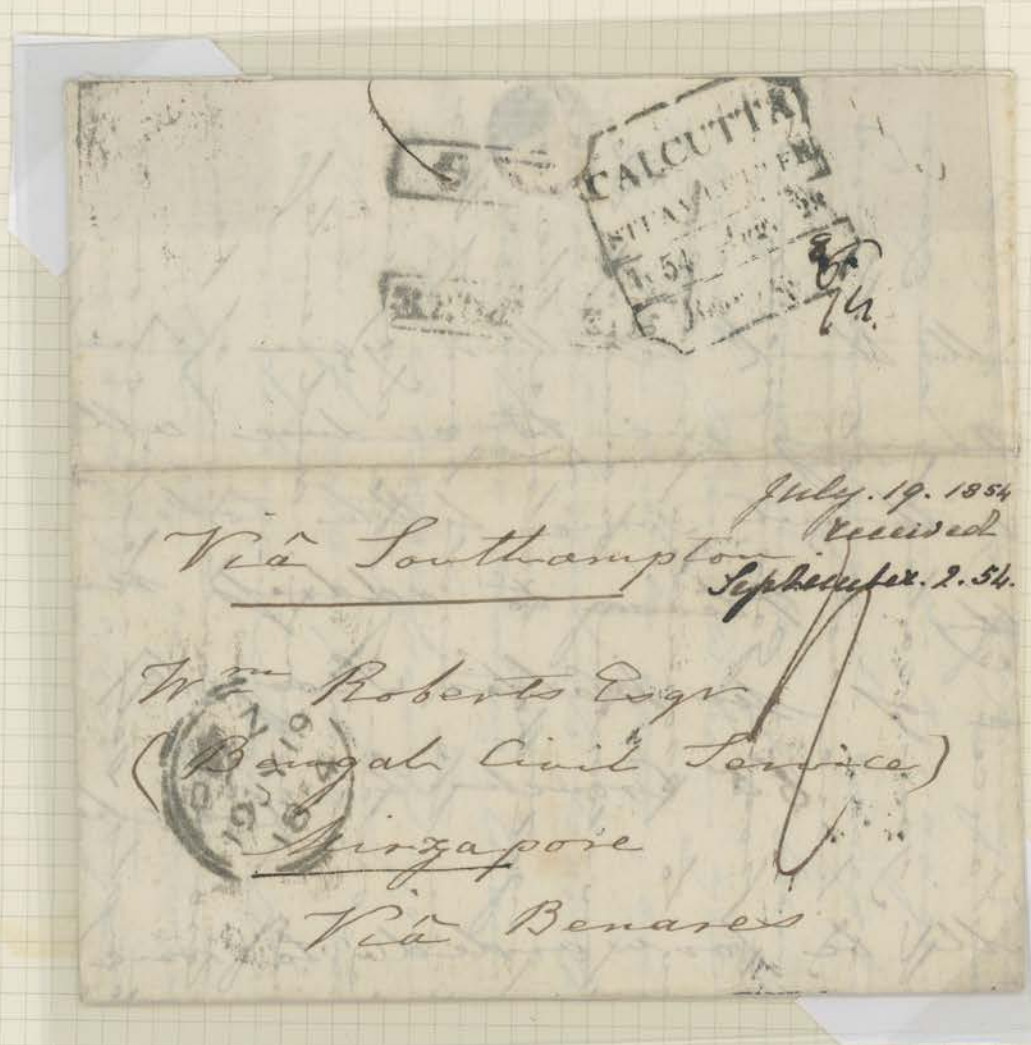 CALCUTTA
STEAM LETTER
July. 19. 1854
received
September. 2. 54.
Viâ Southampton.
Wm Roberts Esqr
(Bengal Civil Service)
Mirzapore
Viâ Benares
19 JY 19
1854